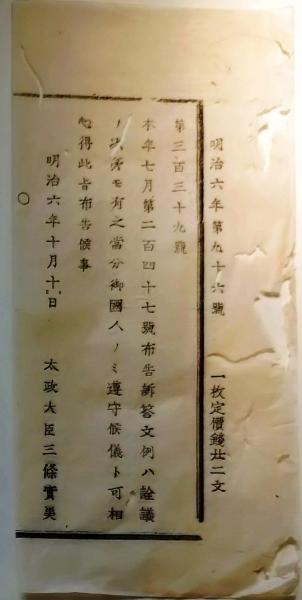 明治六年第九十六號　一枚定價錢廿二文
第三百三十九號
本年七月第二百四十七號布告訴答文例ハ詮議
ノ次第モ有之當分御國人ノミ遵守候儀ト可相
心得此旨布告候事
明治六年十月十日　太政大臣三條實美